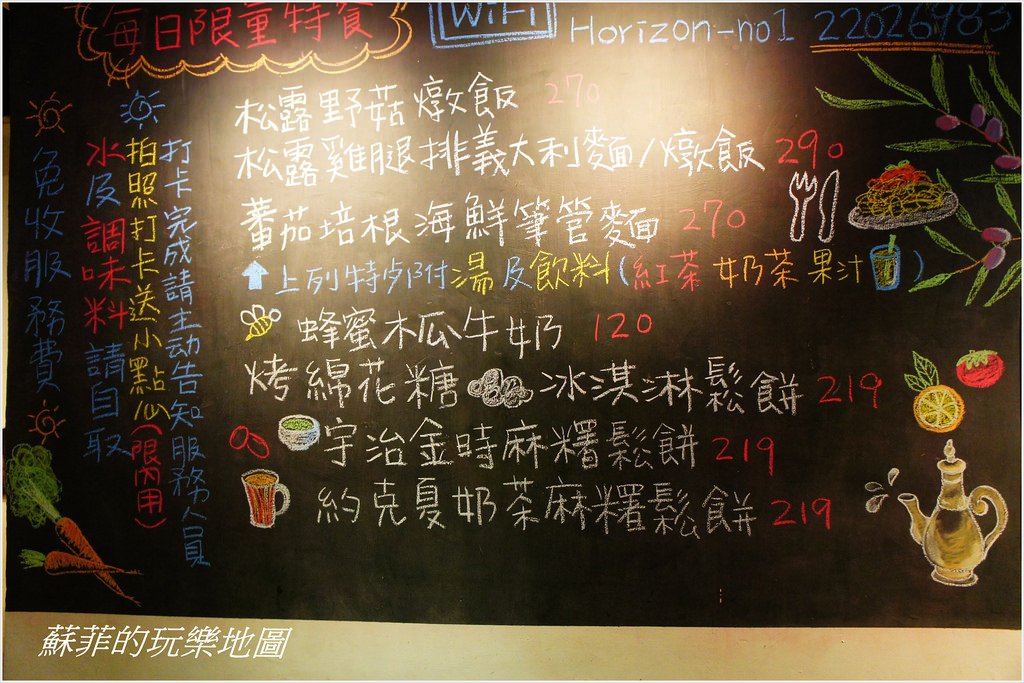 每日限量特餐
WiFi
Horizon-no1 22026983
松露野菇燉飯 270
松露雞腿排義大利麵/燉飯 290
蕃茄培根海鮮筆管麵 270
上列特歺附湯及飲料(紅茶 奶茶 果汁)
蜂蜜木瓜牛奶 120
烤綿花糖冰淇淋鬆餅 219
宇治金時麻糬鬆餅 219
約克夏奶茶麻糬鬆餅 219
打卡完成請主动告知服務人員
拍照打卡送小點心(限內用)
水及調味料請自取
免收服務費
蘇菲的玩樂地圖